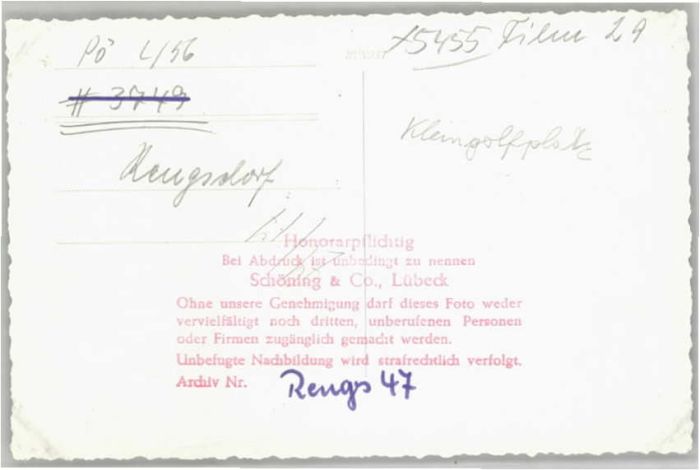 Pö 4/56
+5455 Film 29
# 3749
Kleingolfplatz
Rengsdorf
Honorarpflichtig
Bei Abdruck ist unbedingt zu nennen
Schöning & Co., Lübeck
Ohne unsere Genehmigung darf dieses Foto weder
vervielfältigt noch dritten, unberufenen Personen
oder Firmen zugänglich gemacht werden.
Unbefugte Nachbildung wird strafrechtlich verfolgt.
Archiv Nr. Rengs 47